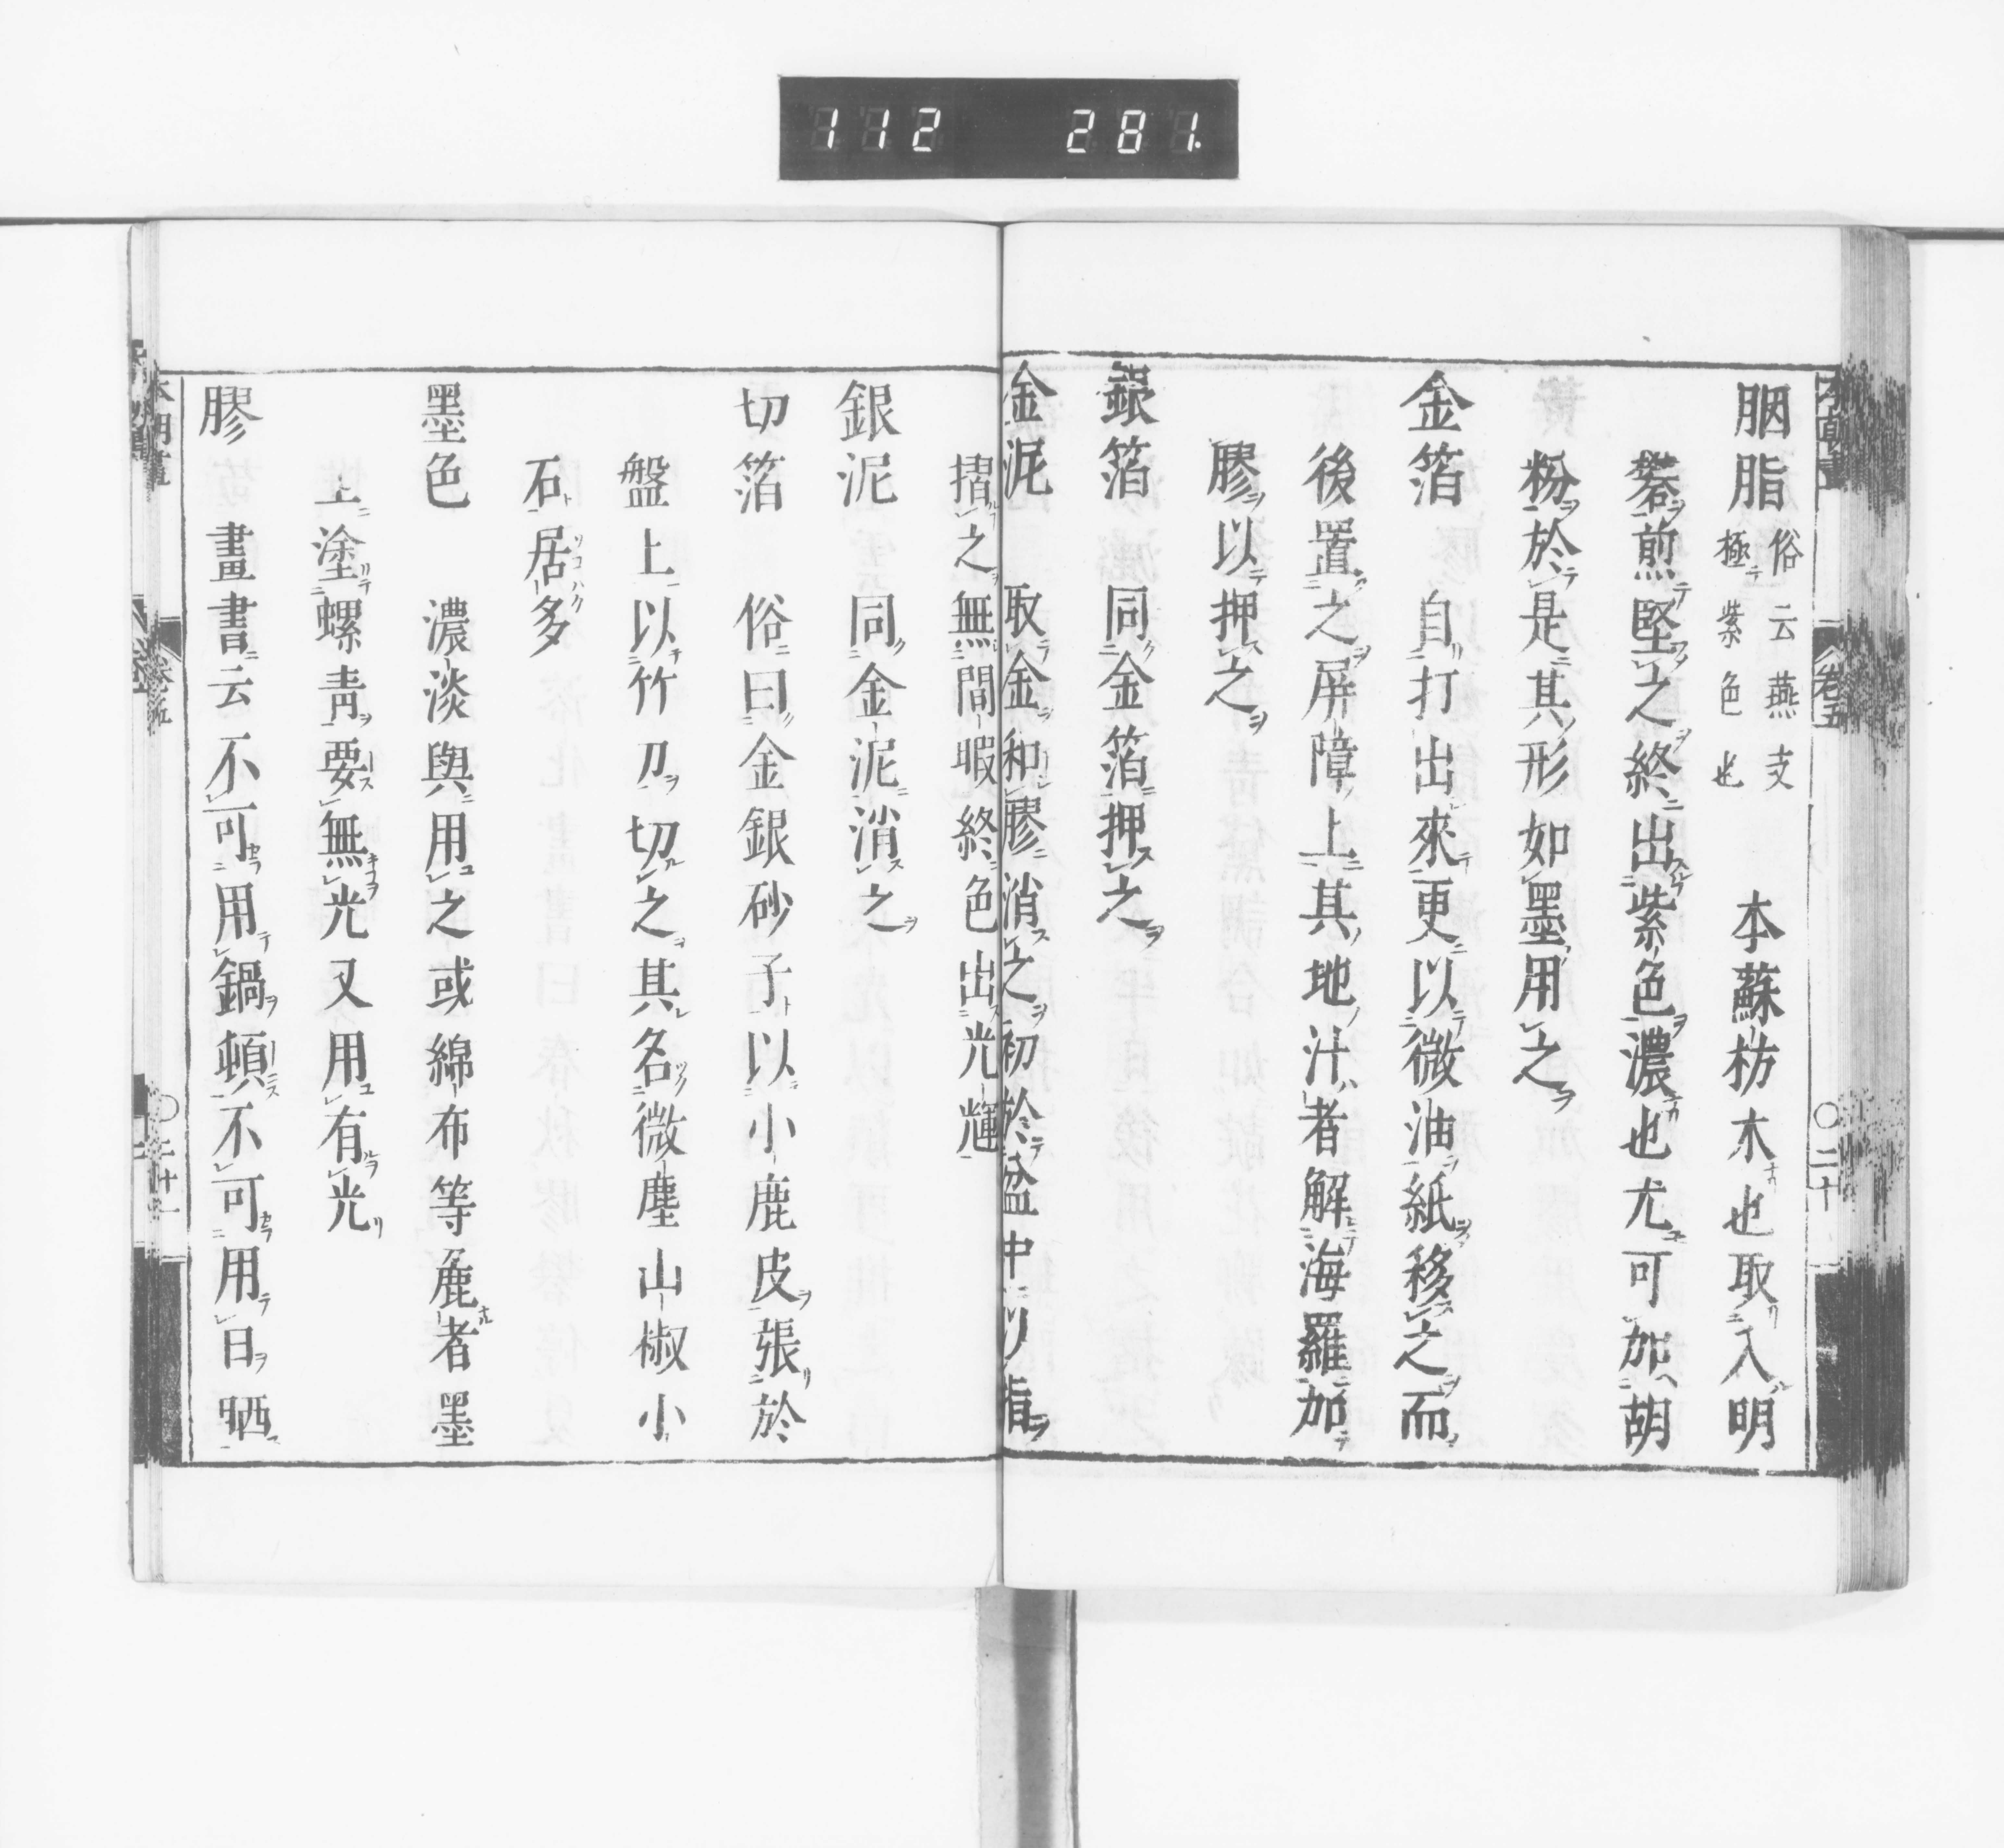 112 281.
胭脂 俗云燕支極紫色也 本蘇枋木也取入明
礬煎堅之終出紫色濃也尤可加胡
粉於是其形如墨用之
金箔 自打出來更以微油紙移之而
後置之屏障上其地汁者解海羅加
膠以押之
銀箔 同金箔押之
金泥 取金和膠消之初於盆中以指
摺之無間暇終色出光輝
銀泥 同金泥消之
切箔 俗曰金銀砂子以小鹿皮張於
盤上以竹刀切之其名微塵山椒小
石居多
墨色 濃淡與用之或綿布等麁者墨
上塗螺青要無光又用有光
膠 畫書云不可用鍋頓不可用日晒
卷五
二十